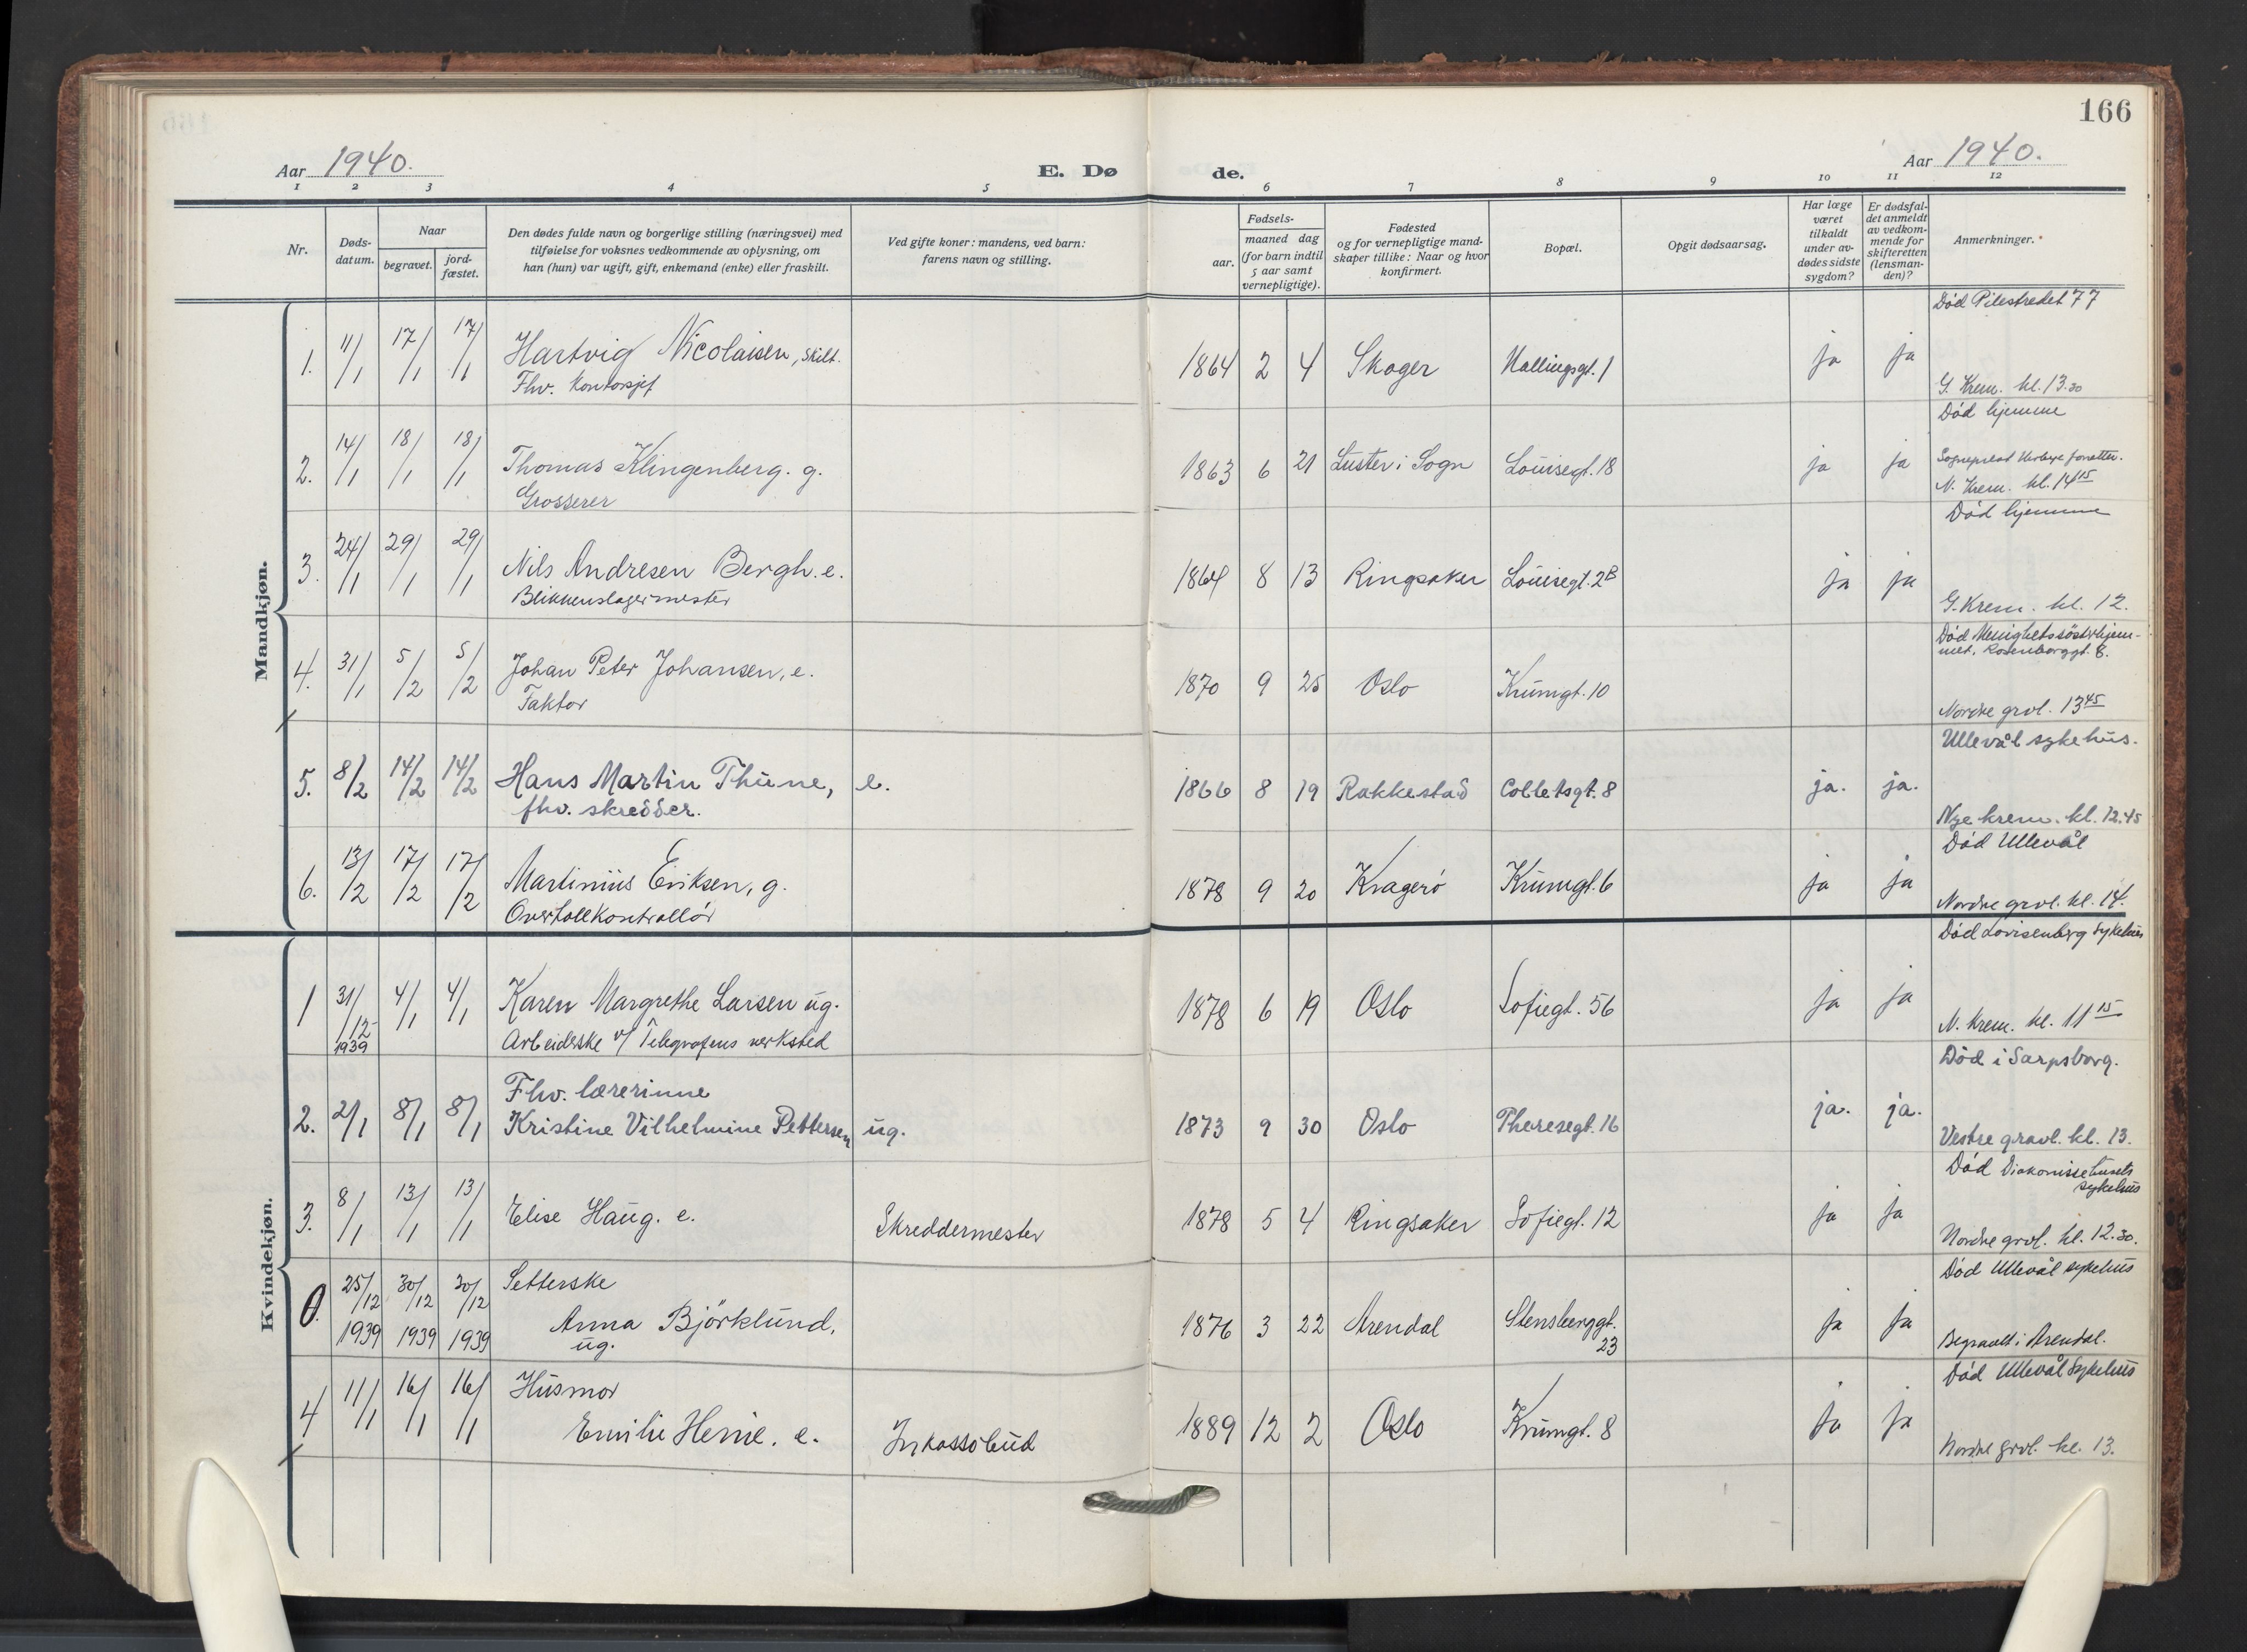 166
Aar 1940.
E. Dø de.
Aar 1940.
1 2 3 4 5 6 7 8 9 10 11 12
Nr.
Døds-
datum.
Naar
begravet.
jord-
fæstet.
Den dødes fulde navn og borgerlige stilling (næringsvei) med
tilføielse for voksnes vedkommende av oplysning, om
han (hun) var ugift, gift, enkemand (enke) eller fraskilt.
Ved gifte koner: mandens, ved barn:
farens navn og stilling.
Fødsels-
aar.
maaned dag
(for barn indtil
5 aar samt
vernepligtige).
Fødested
og for vernepligtige mand-
skaper tillike: Naar og hvor
konfirmert.
Bopæl.
Opgit dødsaarsag.
Har læge
været
tilkaldt
under av-
dødes sidste
sygdom?
Er dødsfal-
det anmeldt
av vedkom-
mende for
skifteretten
(lensman-
den)?
Anmerkninger.
Mandkjøn.
Død Pilestredet 77
1. 11/1 17/1 17/1 Hartvig Nicolaisen, skilt. 1864 2 4 Skoger Hallingsgt. 1 ja ja
Fhv. Kontorsjef
G. Krem. kl. 13.30
Død hjemme
2. 14/1 18/1 18/1 Thomas Klingenberg. g. 1863 6 21 Luster i Sogn Louisegt. 18 ja ja Sogneprest forretter.
Grosserer
N. Krem. kl. 14 15
Død hjemme
3. 24/1 29/1 29/1 Nils Andresen Bergh. e. 1864 8 13 Ringsaker Louisegt. 2B ja ja
Blikkenslagermester
G. Krem. kl. 12.
Død Menighetssøsterhjem-
met, Rosenborggt. 8.
4. 31/1 5/2 5/2 Johan Peter Johansen, e. 1870 9 25 Oslo Krumgt. 10
Faktor
Nordre grvl. 13 45
Ullevål sykehus.
5. 8/2 14/2 14/2 Hans Martin Thune, e. 1866 8 19 Rakkestad Colletsgt. 8 ja. ja.
fhv. skredder.
Nye krem. kl. 12.45
Død Ullevål
6. 13/2 17/2 17/2 Martinius Eriksen, g. 1878 9 20 Kragerø Krumgt. 6 ja ja
Overtollkontrollør
Nordre grvl. kl. 14.
Kvindekjøn.
Død Lovisenberg Sykehus
1 31/12 1939 4/1 4/1 Karen Margrethe Larsen ug. 1878 6 19 Oslo Sofiegt. 56 ja ja
Arbeiderske v/ Telegrafens verksted
N. Krem. kl. 11 15
Død i Sarpsborg.
Fhv. lærerinne
2. 2/1 8/1 8/1 Kristine Vilhelmine Pettersen ug. 1873 9 30 Oslo Theresegt. 16 ja. ja.
Vestre gravl. kl. 13.
Død Diakonissehusets
sykehus
3. 8/1 13/1 13/1 Elise Haug. e. Skreddermester 1878 5 4 Ringsaker Sofiegt. 12 ja ja
Nordre grvl. kl. 12.30.
Død Ullevål sykehus
0. 25/12 1939 30/12 1939 30/12 1939 Setterske
Anna Björklund, 1876 3 22 Arendal Stensberggt. 23 ja ja
ug.
Begravet i Arendal.
Død Ullevål Sykehus
4 11/1 16/1 16/1 Husmor
Emilie Henie. e. Inkassobud 1889 12 2 Oslo Krumgt. 8 ja ja
Nordre grvl. kl. 13.